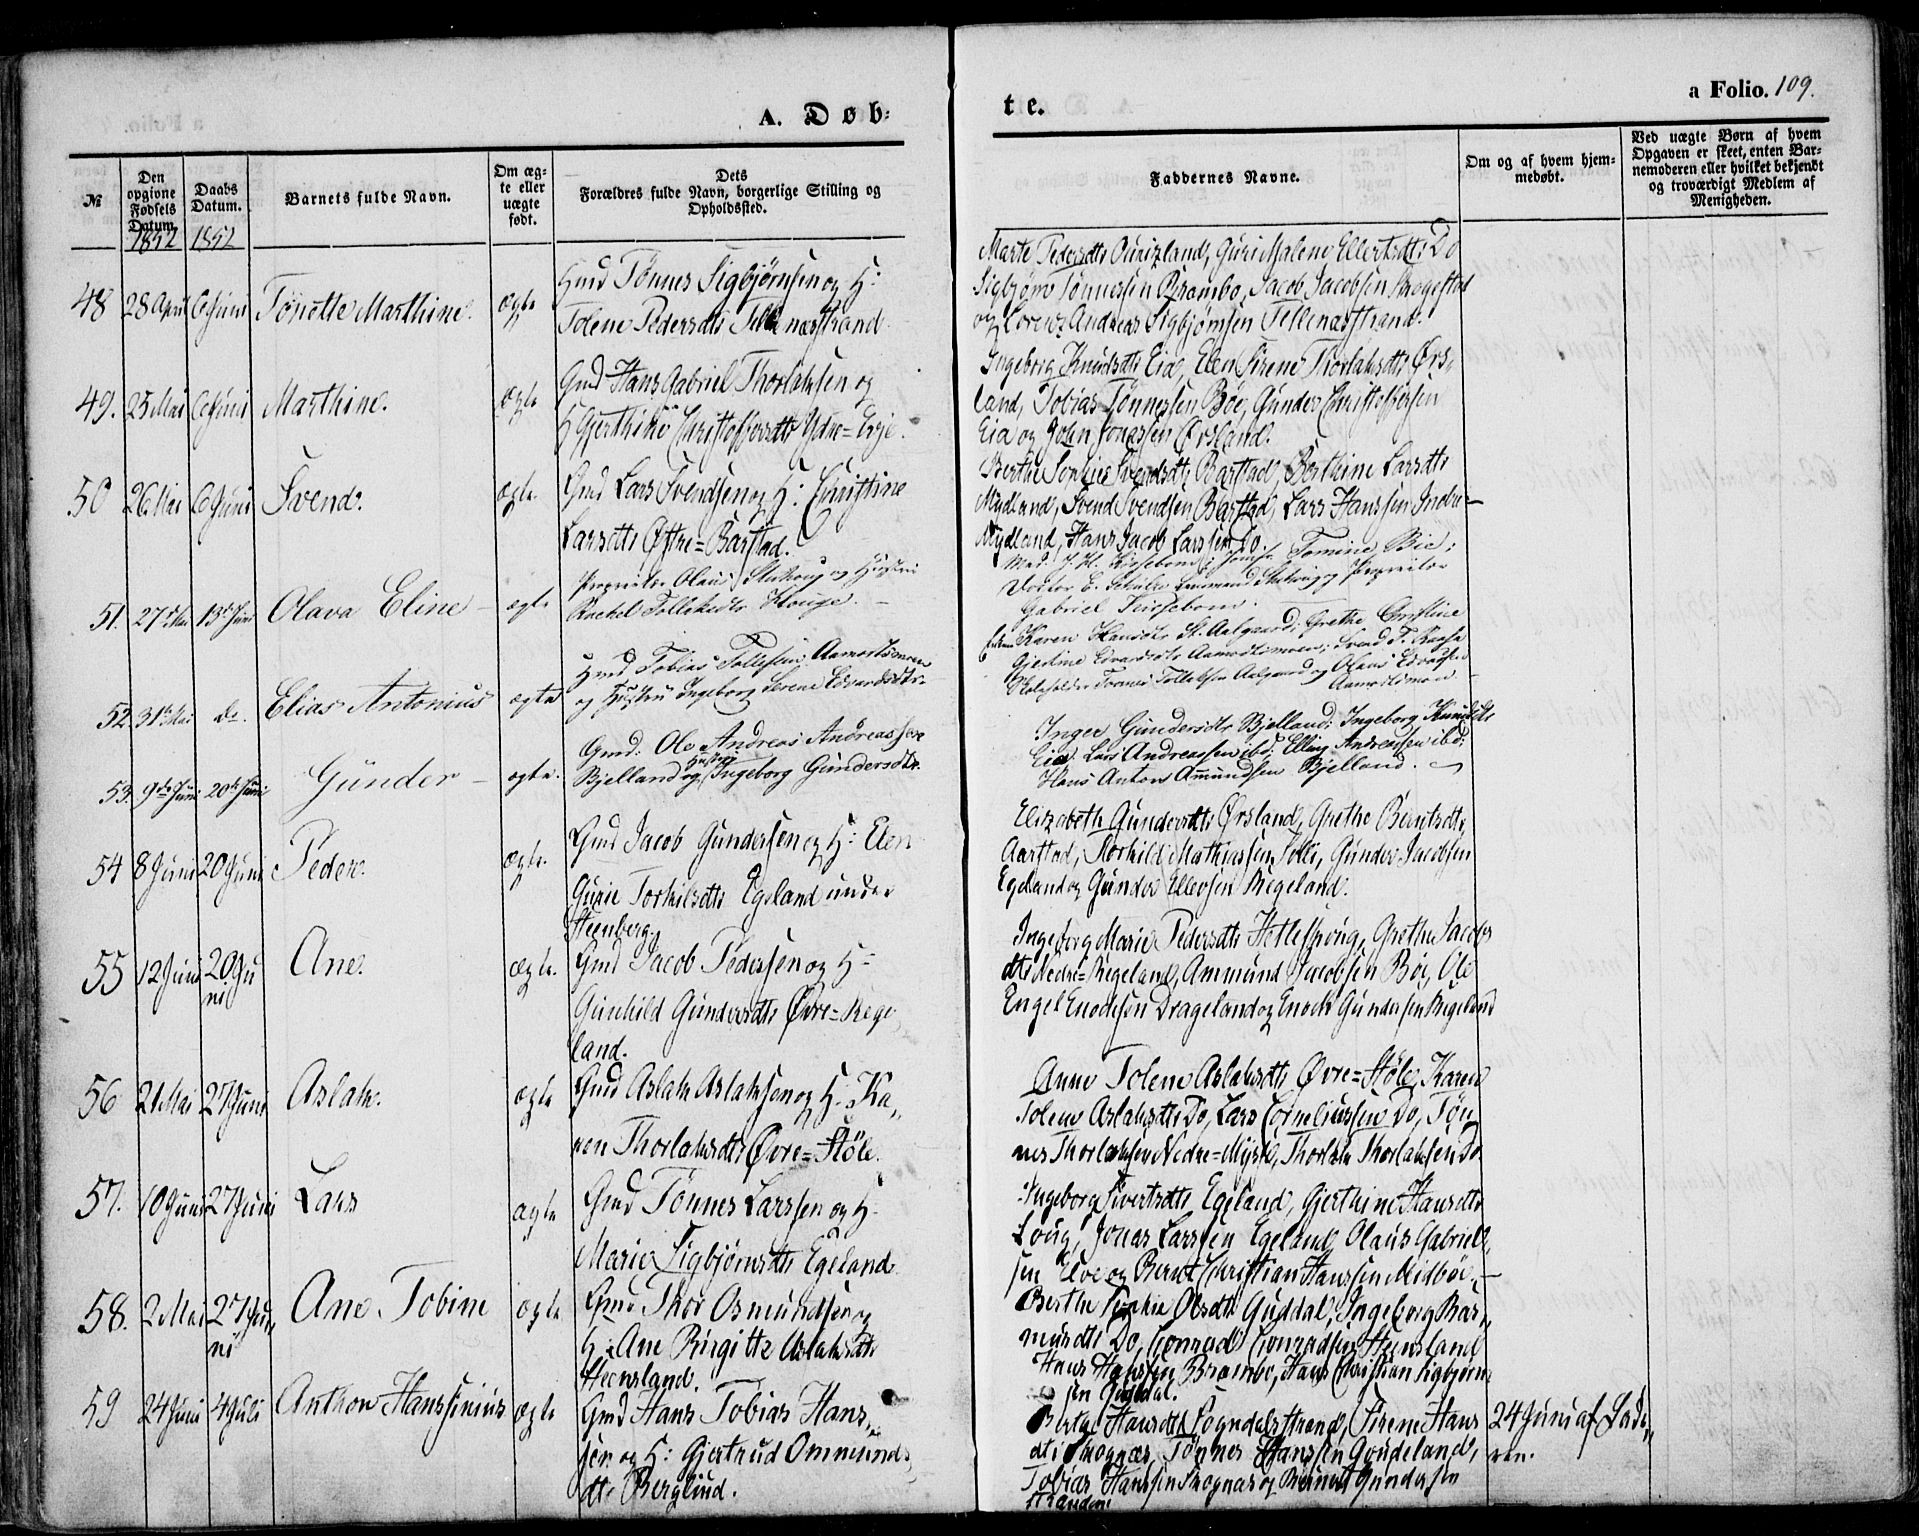 A. Døb-
te.
a Folio. 109.
№
Den opgivne Fødsels Datum.
1852
Daabs Datum.
1852
Barnets fulde Navn.
Om ægte eller uægte født.
Dets Forældres fulde Navn, borgerlige Stilling og Opholdssted.
Faddernes Navne.
Om og af hvem hjemmedøbt.
Ved uægte Børn af hvem Opgaven er skeet, enten Barnemoderen eller hvilket bekjendt og troværdigt Medlem af Menigheden.
48 28 April 6 Juni Tónette Marthine. ægte
Hmd Tønnes Sigbjørnsen og H:
Tolene Pedersdtr Tellenæsstrand
Marte Pedersdtr, Guri Malene Ellertsdtr Do
Sigbjørn Tønnessen Brambo, Jacob Jacobsen Skogestad
og Lorenz Andreas Sigbjørnsen Tellenæsstrand.
49. 25 Mai 6 Juni Marthine. ægte
Gmd Hans Gabriel Thorlaksen og
H Gjerthine Christoffersdtr Ydre=Eeje.
Ingeborg Knudsdtr Eia, Elen Sirene Thorlaksdtr Ørs-
land, Tobias Tønnessen Bøe, Gunder Christoffersen
Eia og John Jonassen Ørsland.
50 26 Mai 6 Juni Svend. ægte
Gmd Lars Svendsen og H: Christine
Larsdtr Østre=Barstad.
Berthe Sophie Svendsdtr Barstad, Berthine Larsdtr
Mydland, Svend Svendsen Barstad, Lars Hanssen Indre-
Mydland, Hans Jacob Larssen Do.
51. 27de Mai 13de Juni Olava Eline - ægte
Proprietær Olaus og Hustru
Rachel Tollefsdtr Hauge. -
Mad. J. H. Kirsebom; Jomfr Tomine Bie;
Doctor E. Schulze Lensmand og Proprietær
Gabriel Kirsebom.
52. 31te Mai do. Elias Antonius ægte
Hmd Tobias Tollefsen Aamodtsmoen
og Hustru Ingeborg Serene Edvardsdtr
Enken Karen Hansdtr St. Aalgaard; Grethe Christine
Gjertine Edvardsdtr Aamodtsmoen; Svend T.
Skoleholder Tønnes Tollefsen Aalgaard og Olaus Edvardsen
Aamodtsmoen
53. 9de Juni 20de Juni Gunder - ægte.
Gmd: Ole Andreas Andreassen
Bjelland og Hustru Ingeborg Gundersdtr.
Inger Gundersdtr Bjelland; Ingeborg Knudsdtr
Eia; Lars Andreassen ibd; Elling Andreassen ibd;
Hans Anton Amundsen Bjelland.
54 8 Juni 20 Juni Peder. ægte.
Gmd Jacob Gundersen og H: Elen
Gurie Torkilsdtr Egeland under
Steenberg.
Elizabeth Gundersdtr Ørsland, Grethe Berntsdtr
Aarstad, Torkild Mathiassen Tolli, Gunder Jacobsen
Egeland og Gunder Ellevsen Regeland.
55 12 Juni 20 Ju
ni Ane. ægte.
Gmd Jacob Pedersen og H:
Gunhild Gundersdtr Øvre=Rege
land.
Ingeborg Marie Pedersdtr Hetlesprong, Grethe Jacobs
dtr Nedre=Regeland, Ammund Jacobsen Bøe, Ole
Engel Enochsen Drageland og Enoch Gundersen Regeland
56 21 Mai 27 Juni Aslak. ægte
Gmd Aslak Aslaksen og H: Ka,,
ren Thorlaksdtr Øvre=Støle.
Anne Tolene Aslaksdtr Øvre=Støle, Karen
Tolene Aslaksdtr Do, Lars Corneliussen Do, Tøn
nes Thorlaksen Nedre=Mysse, Thorlak Thorlaksen Do.
57. 10 Juni 27 Juni Lars ægte
Gmd Tønnes Larssen og H:
Marie Sigbjørnsdtr Egeland
Ingeborg Sivertsdtr Egeland, Gjerthine Hansdtr
Loug, Jonas Larssen Egeland, Olaus Gabriel
sen Elve og Bernt Christian Hanssen Midbøe.
58. 2 Mai 27 Ju,,
ni Ane Tobine ægte
Gmd Thor Osmundsen og
H: Ane Birgitte Aslaksdtr
Steensland.
Berthe Sophie Olsdtr Guddal, Ingeborg Ras,,
musdtr Do, Conrad Conradsen Steensland
Hans Hanssen Brambo, Hans Christian Sigbjørn
sen Guddal.
59 24 Juni 4 Juli Anthon Hanssinius ægte
Gmd Hans Tobias Hans,,
sen og H: Gjertrud Ommunds
dtr Berglund.
Hansdtr Sogndalsstrand, Sirene Hans
dtr Skognæs, Tønnes Hanssen Goudeland,
Tobias Hanssen Skognæs og Bernt Gundersen
Stranden.
24 Juni af Fade,,
ren.